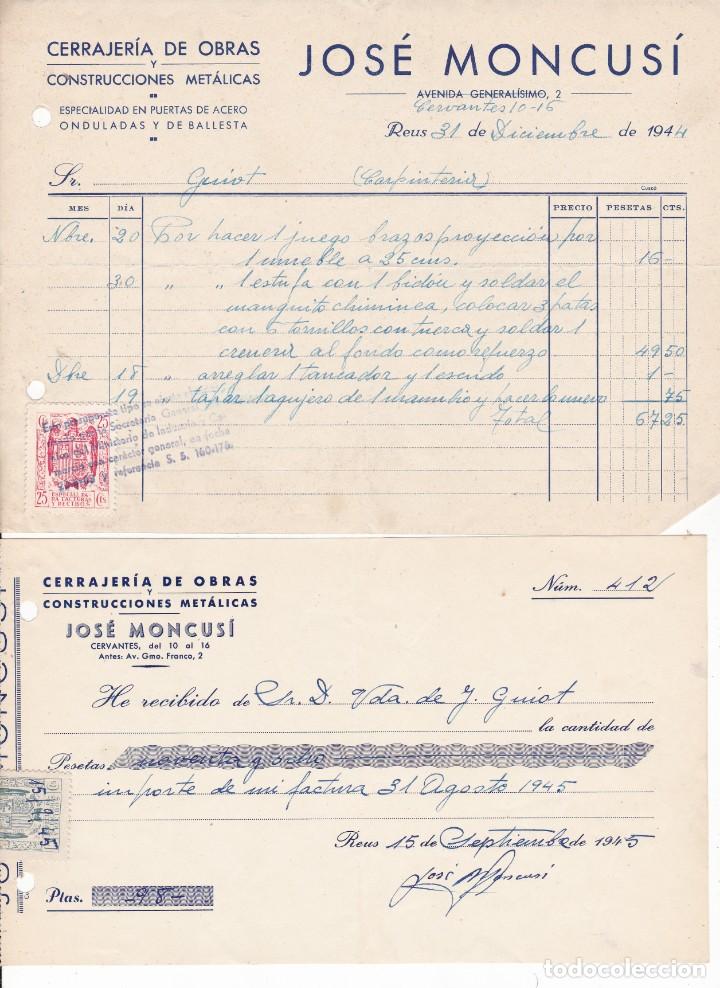 CERRAJERÍA DE OBRAS
Y
CONSTRUCCIONES METÁLICAS
ESPECIALIDAD EN PUERTAS DE ACERO
ONDULADAS Y DE BALLESTA
JOSÉ MONCUSÍ
AVENIDA GENERALÍSIMO, 2
Cervantes 10-16
Reus 31 de Diciembre de 1944
Sr. Guiot (Carpinteria)
MES DÍA PRECIO PESETAS CTS.
Nbre. 20 Por hacer 1 juego brazos proyección por
1 mueble a 25 cms. 16 -
30 " " 1 estufa con 1 bidón y soldar el
manguito chiminea, colocar 3 patas
con 6 tornillos con tuerca y soldar 1
al fondo como refuerzo. 49 50
Dbre 18 " arreglar 1 tancador y 1 escudo 1 -
19 " tapar 1 agujero de 1 y hacerlo nuevo 75
Total 67 25
Este presupuesto tipo
Secretaría General
del Ministerio de Industria y Co-
mercio con carácter general, en fecha
y referencia S. 5. 160-176.
25 Cts
ESPECIAL PA-
RA FACTURAS
Y RECIBOS
CERRAJERÍA DE OBRAS
Y
CONSTRUCCIONES METÁLICAS
JOSÉ MONCUSÍ
CERVANTES, del 10 al 16
Antes: Av. Gmo. Franco, 2
Núm. 412
He recibido de Sr. D. Vda. de J. Guiot
la cantidad de
Pesetas noventa y ocho
importe de mi factura 31 Agosto 1945
Reus 15 de Septiembre de 1945
José Moncusí
Ptas. -98-
15 9 45
todocoleccion